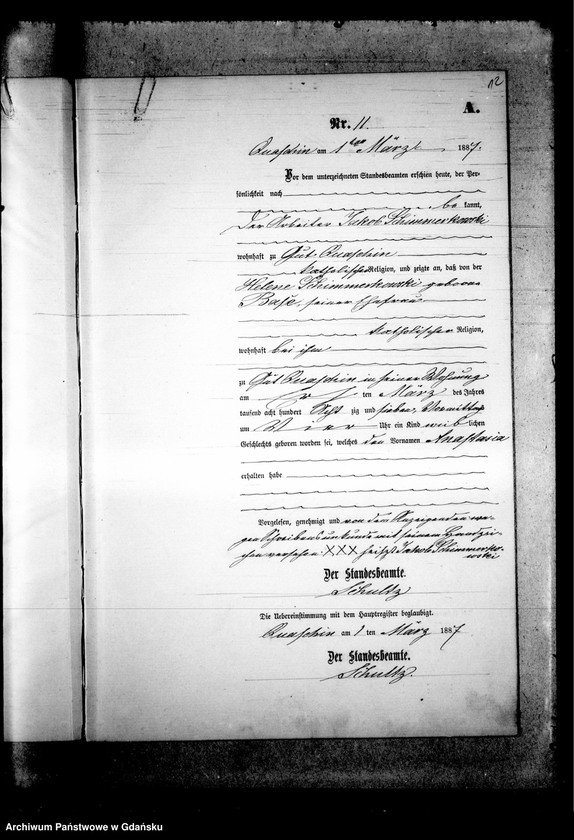 12
A.
Nr. 11.
Quaschin am 1ten März 1887.
Vor dem unterzeichneten Standesbeamten erschien heute, der Per-
sönlichkeit nach
be kannt,
der Arbeiter Jakob Schimmerkowski
wohnhaft zu Gut Quaschin
katholischer Religion, und zeigte an, daß von der
Helene Schimmerkowski geborene
seiner Ehefrau
katholischer Religion,
wohnhaft bei ihm
zu Gut Quaschin in seiner Wohnung
am ten März des Jahres
tausend acht hundert Acht zig und sieben, Vormittags
um Vier Uhr ein Kind weib lichen
Geschlechts geboren worden sei, welches den Vornamen Anastasia
erhalten habe
Vorgelesen, genehmigt und von dem Anzeigenden we-
gen Schreibensunkunde mit seinem Handzei-
chen versehen XXX heißt Jakob Schimmerko-
wski
Der Standesbeamte.
Schultz
Die Uebereinstimmung mit dem Hauptregister beglaubigt.
Quaschin am 1 ten März 1887
Der Standesbeamte.
Schultz.
Archiwum Państwowe w Gdańsku